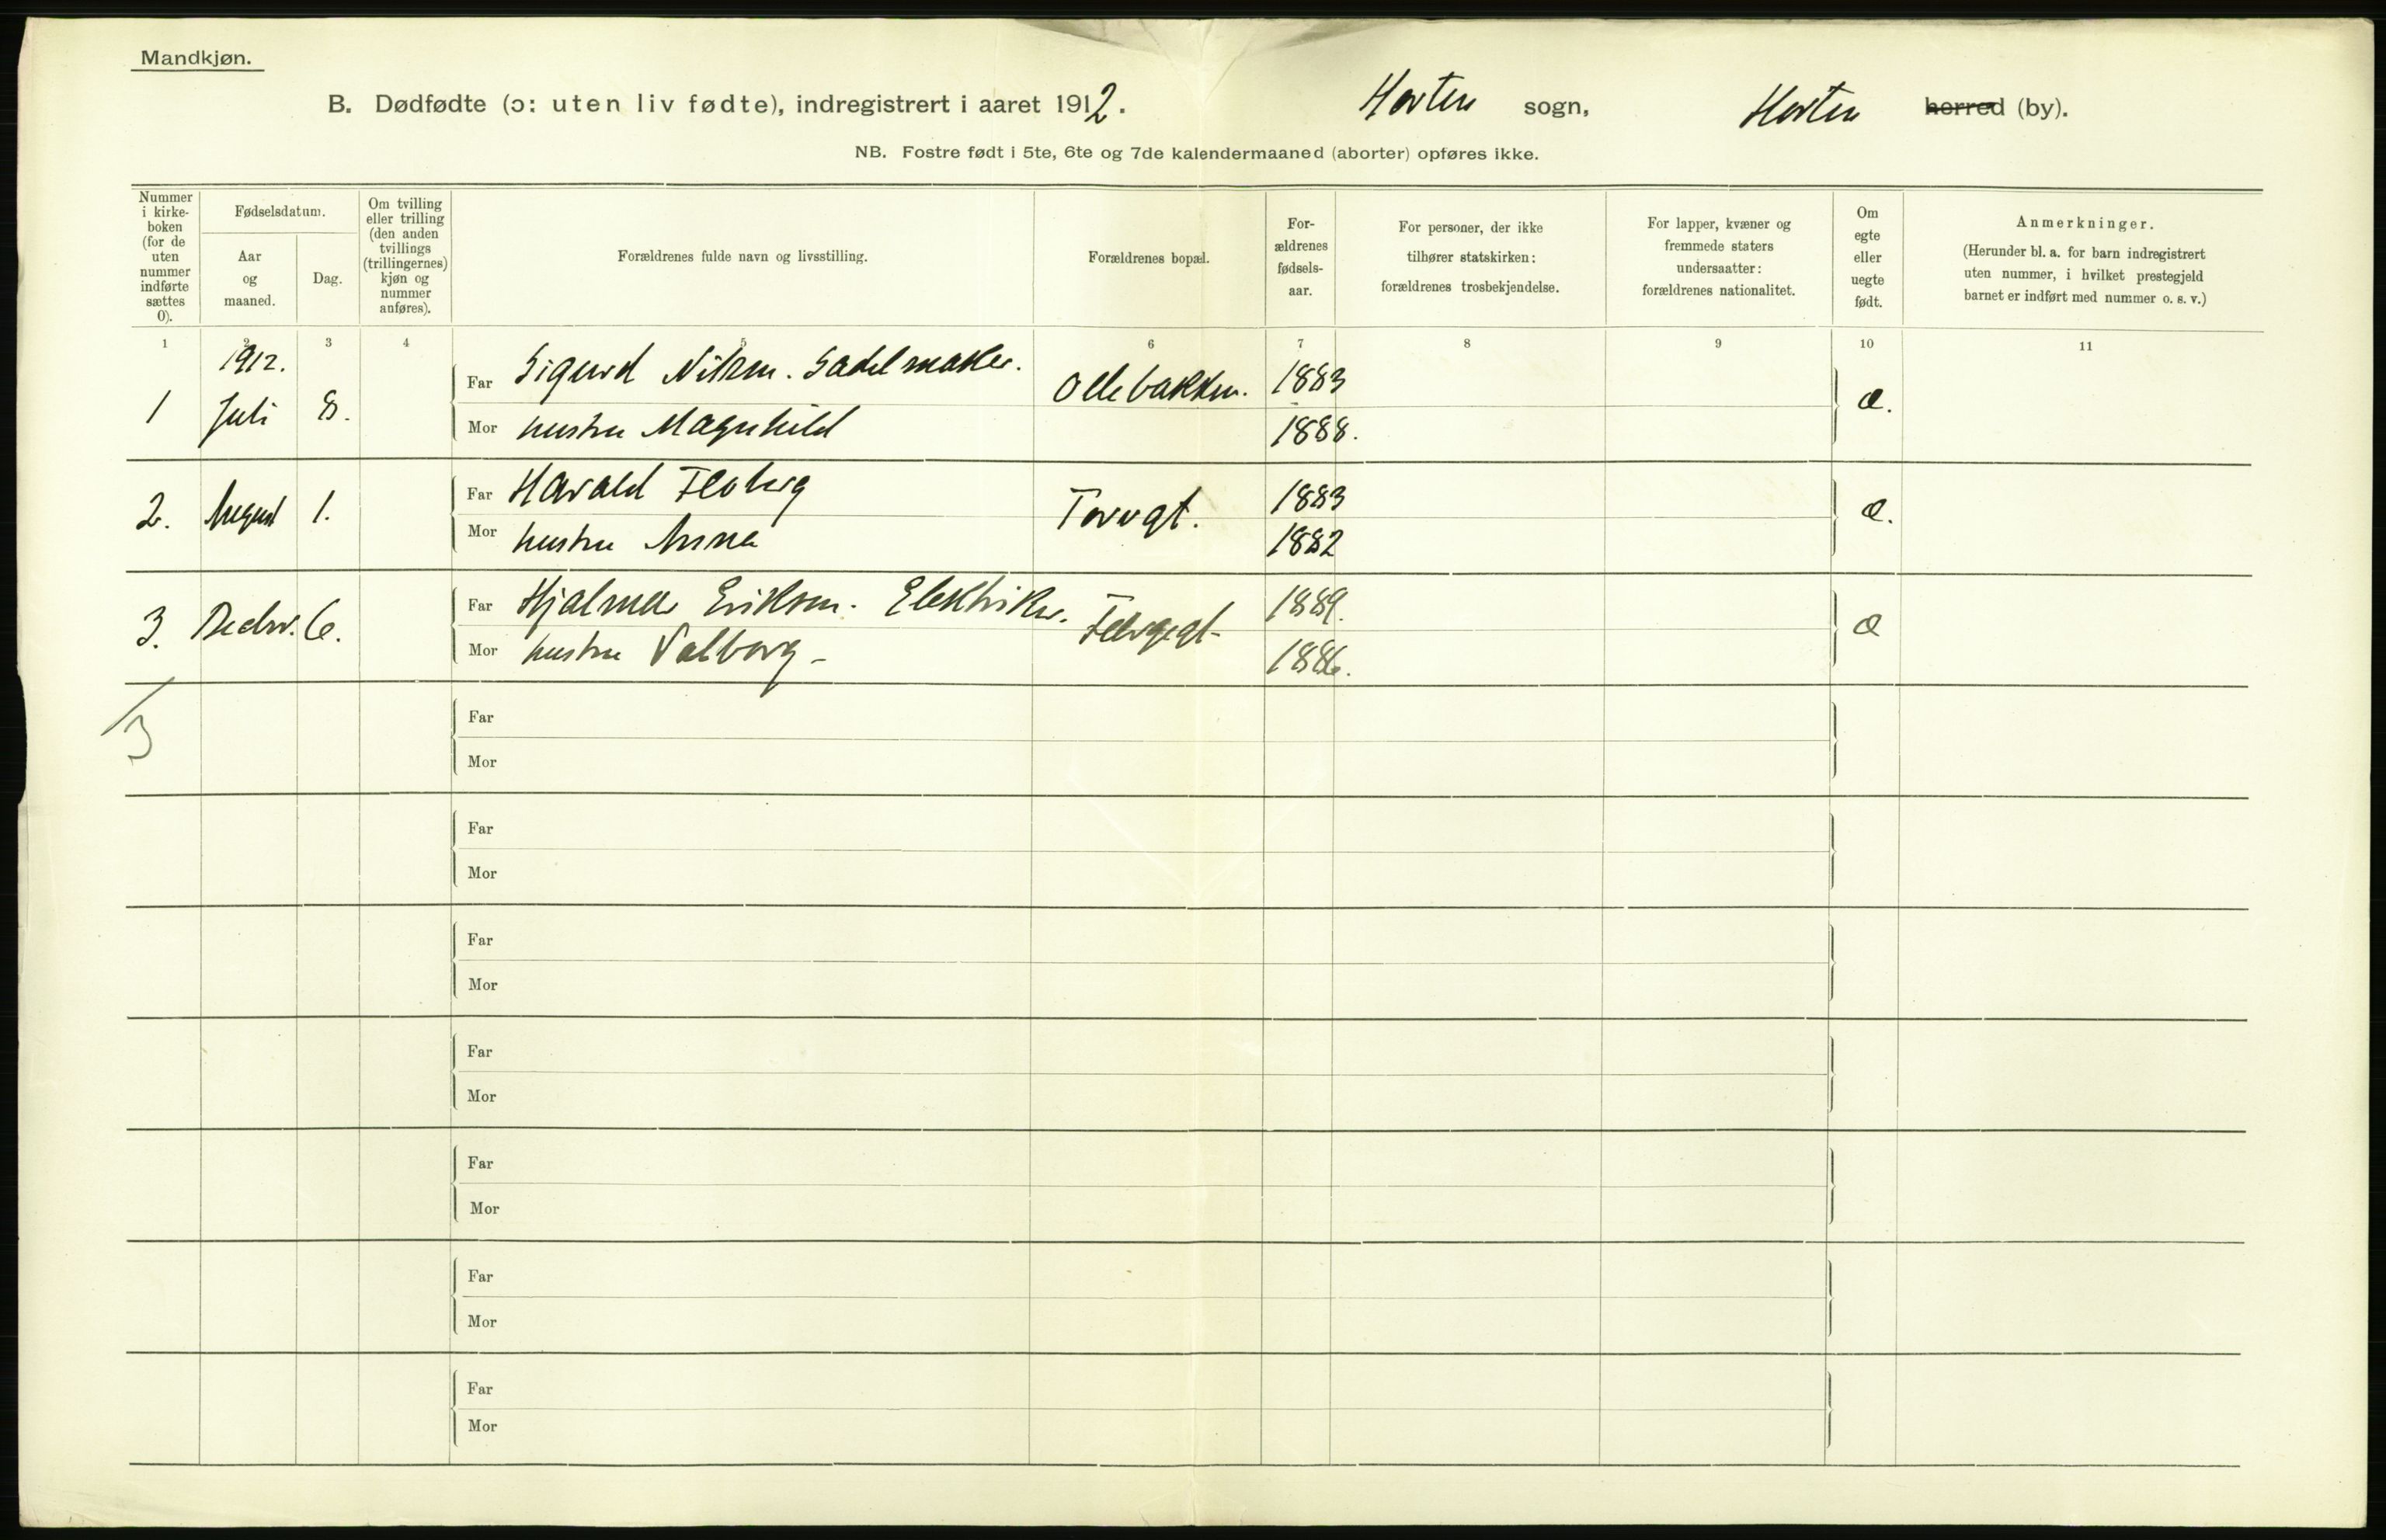 Mandkjøn.
B. Dødfødte (ɔ: uten liv fødte), indregistrert i aaret 1912. Horten sogn, Horten herred (by).
NB. Fostre født i 5te, 6te og 7de kalendermaaned (aborter) opføres ikke.
Nummer i kirke- boken (for de uten nummer indførte sættes 0).
Fødselsdatum.
Aar og maaned.
Dag.
Om tvilling eller trilling (den anden tvillings (trillingernes) kjøn og nummer anføres).
Forældrenes fulde navn og livsstilling.
Forældrenes bopæl.
For- ældrenes fødsels- aar.
For personer, der ikke tilhører statskirken: forældrenes trosbekjendelse.
For lapper, kvæner og fremmede staters undersaatter: forældrenes nationalitet.
Om egte eller uegte født.
Anmerkninger.
(Herunder bl. a. for barn indregistrert uten nummer, i hvilket prestegjeld barnet er indført med nummer o. s. v.)
1 2 3 4 5 6 7 8 9 10 11
1912.
1 Juli 8. Far Sigurd Nilsen. Sadelmaker. Ollebakken. 1883 æ.
Mor hustru Magnhild 1888.
2. August 1. Far Harald Torvgt. 1883 æ.
Mor hustru Anna 1882
3. Decbr. 6. Far Hjalmar Eriksen. Elektriker. 1889. æ
Mor hustru Valborg - 1886.
3
Far
Mor
Far
Mor
Far
Mor
Far
Mor
Far
Mor
Far
Mor
Far
Mor